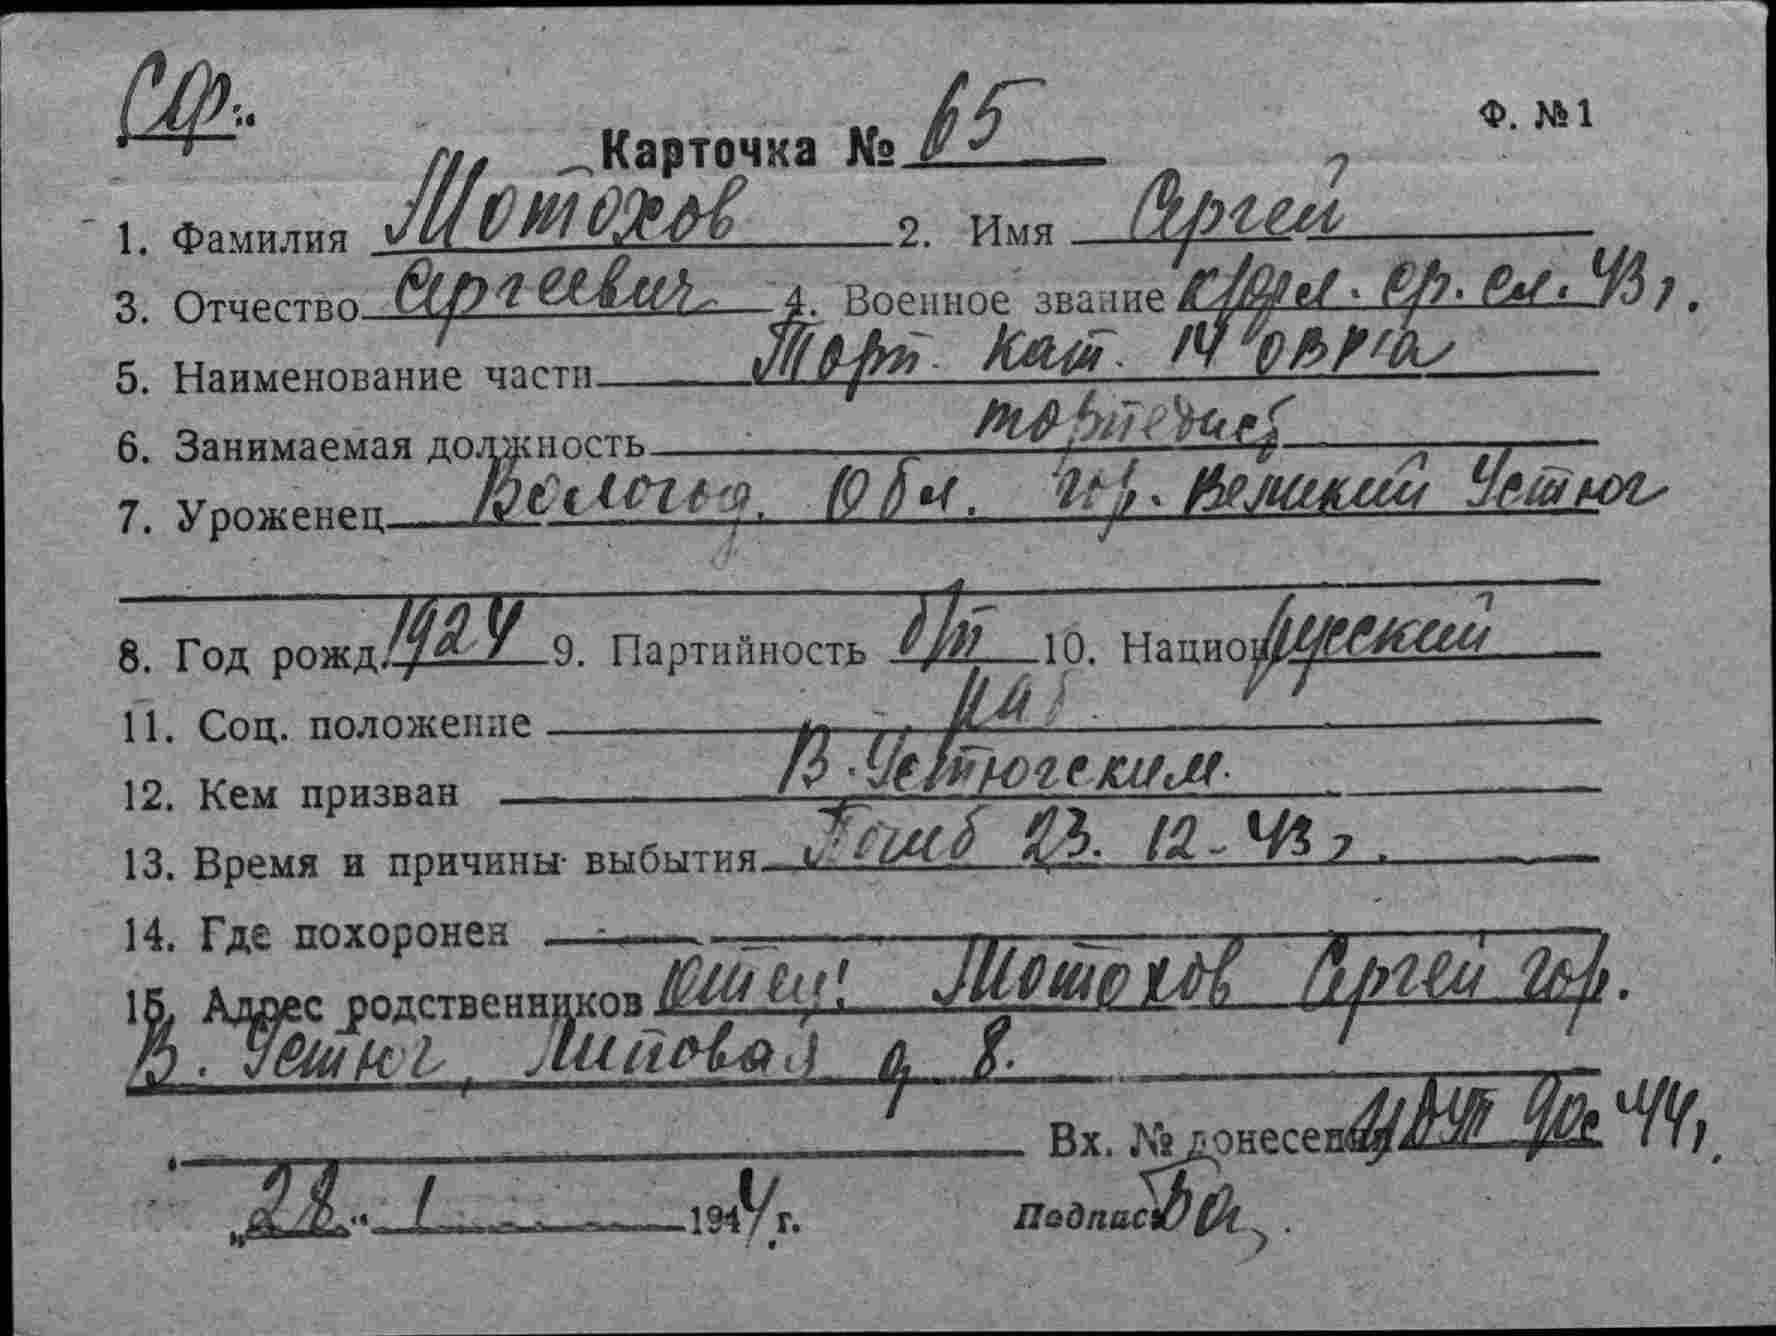 СФ.
Ф. №1
Карточка № 65
1. Фамилия Мотохов 2. Имя Сергей
3. Отчество Сергеевич 4. Военное звание к/фл. ср. сл. 43 г.
5. Наименование части Торп. кат. 14 ОВР'а
6. Занимаемая должность торпедист
7. Уроженец Вологод. Обл. гор. Великий Устюг
8. Год рожд. 1924 9. Партийность б/п 10. Национ. русский
11. Соц. положение раб.
12. Кем призван В. Устюгским.
13. Время и причины выбытия Погиб 23. 12 - 43 г.
14. Где похоронен
15. Адрес родственников Отец: Мотохов Сергей гор.
В. Устюг, Липовая д 8.
Вх. № донесения 44 г.
„28“ 1 1944 г. Подпись